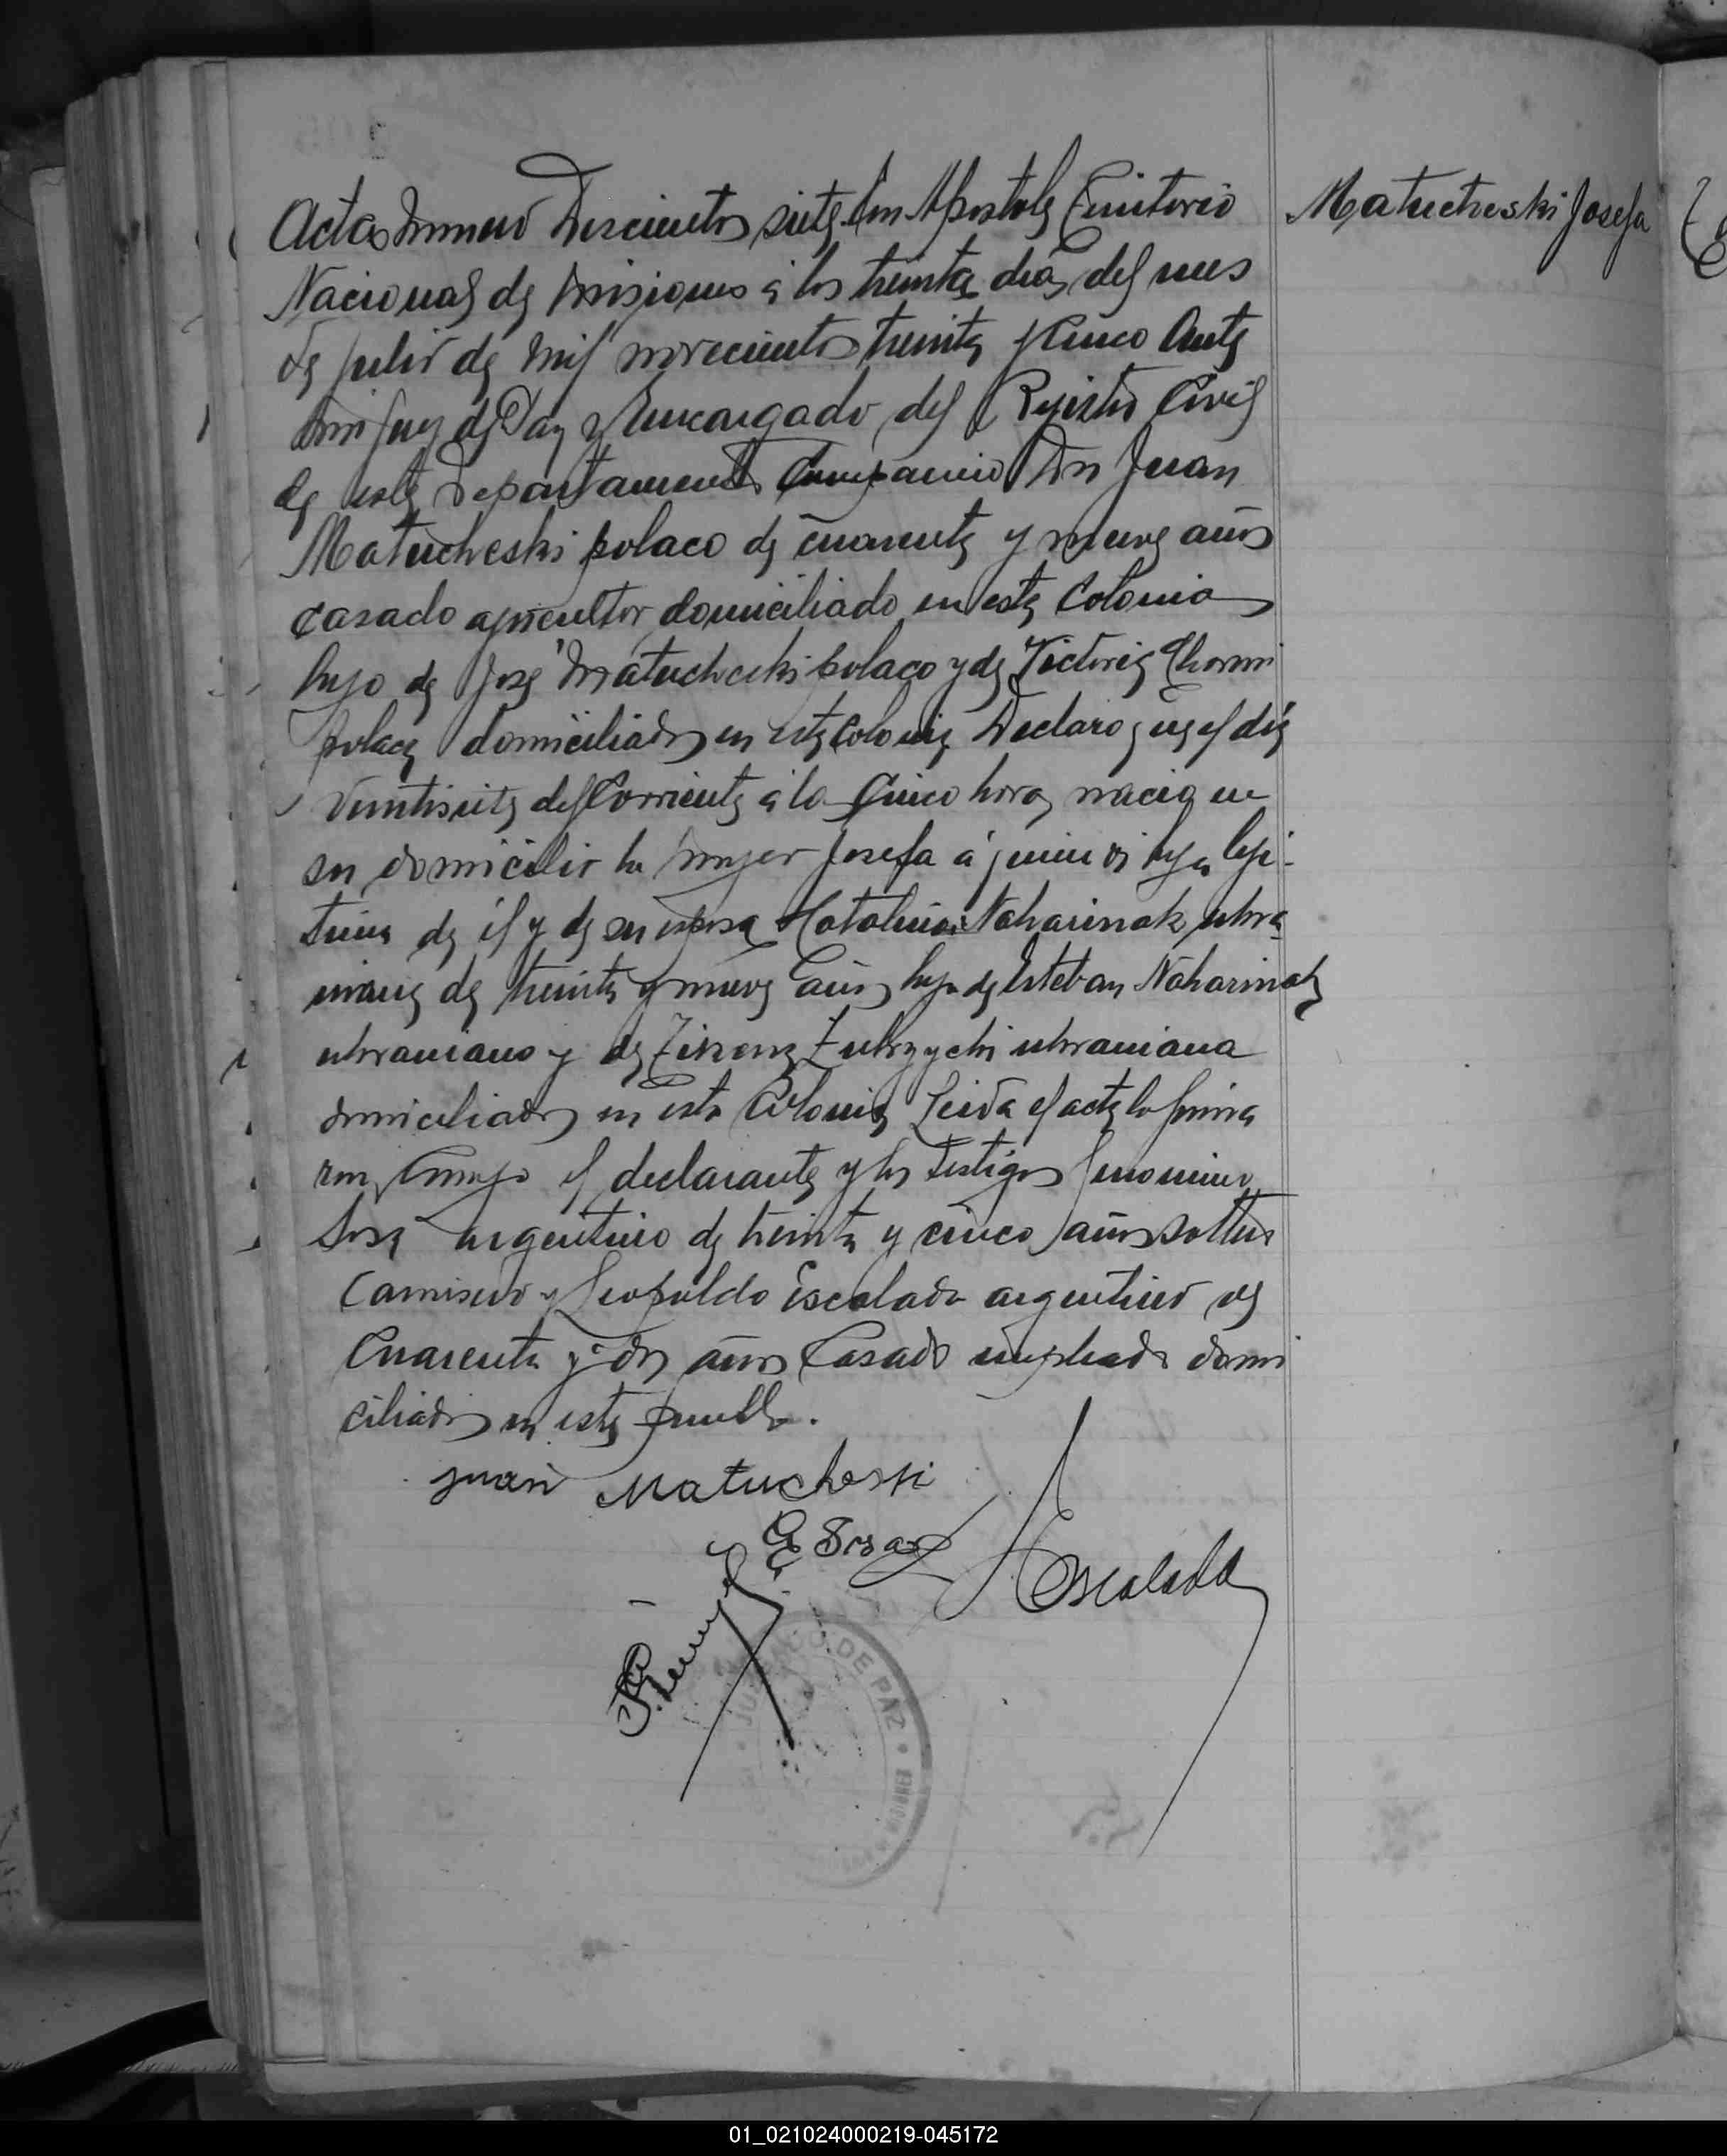 Matucheski Josefa
Acta numero Doscientos siete. En Apostoles Territorio
Nacional de Misiones á los treinta dias del mes
de julio de mil novecientos treinta y cinco Ante
mi Juez de Paz y Encargado del Rejistro Civil
de este Departamento Comparecio Don Juan
Matucheski polaco de cuarenta y nueve años
casado agricultor domiciliado en esta Colonia
hijo de José Matucheski polaco y de Victoria
polaca domiciliados en esta Colonia Declaro que el dia
Veintisiete del Corriente á la cinco horas nacia en
su domicilio la mujer Josefa á quien vi hija leji-
tima de él y de su esposa Catalina Naharinak ukra
niana de treinta y nueve años hija de Esteban Naharinak
ukraniano y de Zukrzycki ukraniana
domiciliados en esta Colonia Leida el acta la firma
ron conmigo el declarante y los testigos
Sosa argentino de treinta y cinco años soltero
Camisero y Leopoldo Escalada argentino de
Cuarenta y dos años Casado empleado domi
ciliados en este pueblo.
Juan Matucheski
G Sosa
Escalada
JUZGADO DE PAZ